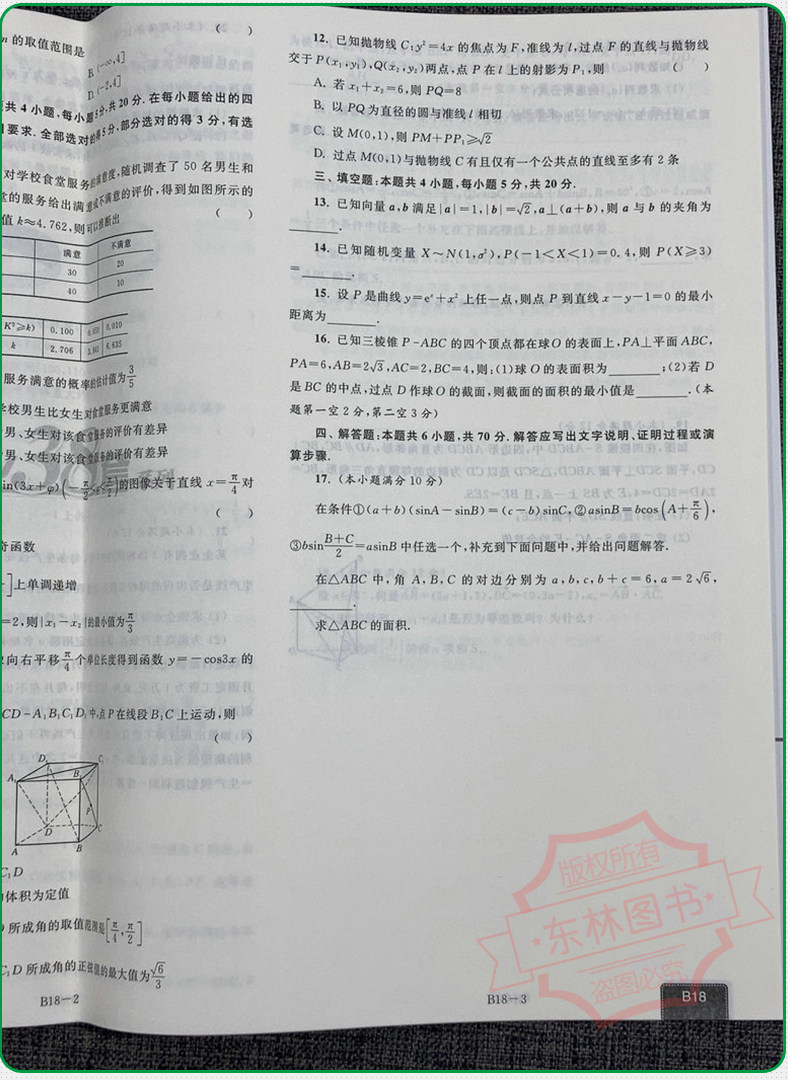 n 的取值范围是
(　　)
B.(-∞,4]
D.(-2,4]
共 4 小题,每小题5分,共 20 分. 在每小题给出的四
要求. 全部选对的得5分,部分选对的得 3 分,有选
对学校食堂服务的满意度,随机调查了 50 名男生和
堂的服务给出满意或不满意的评价,得到如图所示的
值 k≈4.762,则可以推断出
(　　)
满意 不满意
30 20
40 10
K²≥k) 0.100 0.010
k 2.706 6.635
服务满意的概率的估计值为3/5
学校男生比女生对食堂服务更满意
男、女生对该食堂服务的评价有差异
男、女生对该食堂服务的评价有差异
sin(3x+φ)(-π/2<φ<π/2)的图像关于直线 x=π/4对
(　　)
奇函数
]上单调递增
=2,则|x₁-x₂|的最小值为π/3
向右平移π/4个单位长度得到函数 y=-cos3x 的
CD-A₁B₁C₁D₁中,点P在线段 B₁C 上运动,则
(　　)
D₁ C₁
A₁ B₁
P
D C
A B
C₁D
体积为定值
所成角的取值范围是[π/4,π/2]
C₁D 所成角的正弦值的最大值为√6/3
B18-2
12. 已知抛物线 C:y²=4x 的焦点为 F,准线为 l,过点 F 的直线与抛物线
交于 P(x₁,y₁),Q(x₂,y₂)两点,点 P 在 l 上的射影为 P₁,则 (　　)
A. 若 x₁+x₂=6,则 PQ=8
B. 以 PQ 为直径的圆与准线 l 相切
C. 设 M(0,1),则 PM+PP₁≥√2
D. 过点 M(0,1)与抛物线 C 有且仅有一个公共点的直线至多有 2 条
三、填空题:本题共 4 小题,每小题 5 分,共 20 分.
13. 已知向量 a,b 满足|a|=1,|b|=√2,a⊥(a+b),则 a 与 b 的夹角为
______.
14. 已知随机变量 X~N(1,σ²),P(-1<X<1)=0.4,则 P(X≥3)
=______.
15. 设 P 是曲线 y=eˣ+x² 上任一点,则点 P 到直线 x-y-1=0 的最小
距离为______.
16. 已知三棱锥 P-ABC 的四个顶点都在球O 的表面上,PA⊥平面 ABC,
PA=6,AB=2√3,AC=2,BC=4,则:(1)球 O 的表面积为______;(2)若 D
是 BC 的中点,过点 D 作球 O 的截面,则截面的面积的最小值是______.(本
题第一空 2 分,第二空 3 分)
四、解答题:本题共 6 小题,共 70 分. 解答应写出文字说明、证明过程或演
算步骤.
17.(本小题满分 10 分)
在条件①(a+b)(sinA-sinB)=(c-b)sinC,②asinB=bcos(A+π/6),
③bsin(B+C)/2=asinB 中任选一个,补充到下面问题中,并给出问题解答.
在△ABC 中,角 A,B,C 的对边分别为 a,b,c,b+c=6,a=2√6,
______.
求△ABC 的面积.
版权所有
东林图书
盗图必究
B18-3
B18